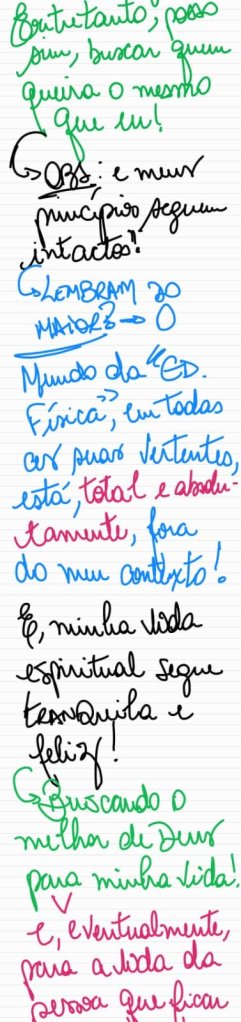 Entretanto, posso
sim, buscar quem
queira o mesmo
que eu!
↳ OBS: e meus
princípios seguem
intactos!
↳ LEMBRAM DO
MAIOR? → O
Mundo da "ED.
Física", em todas
as suas vertentes,
está, total e absolu-
tamente, fora
do meu contexto!
E, minha vida
espiritual segue
TRANQuila e
feliz!
↳ Buscando o
melhor de Deus
para minha vida!
E, eventualmente,
para a vida da
pessoa que ficar